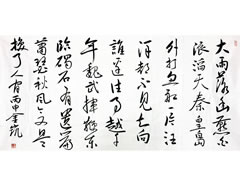 大雨落幽燕白
浪滔天秦皇島
外打魚船一片汪
洋都不見知向
誰邊往事越千
年魏武揮鞭東
臨碣石有遺篇
蕭瑟秋風今又是
換了人間丙申